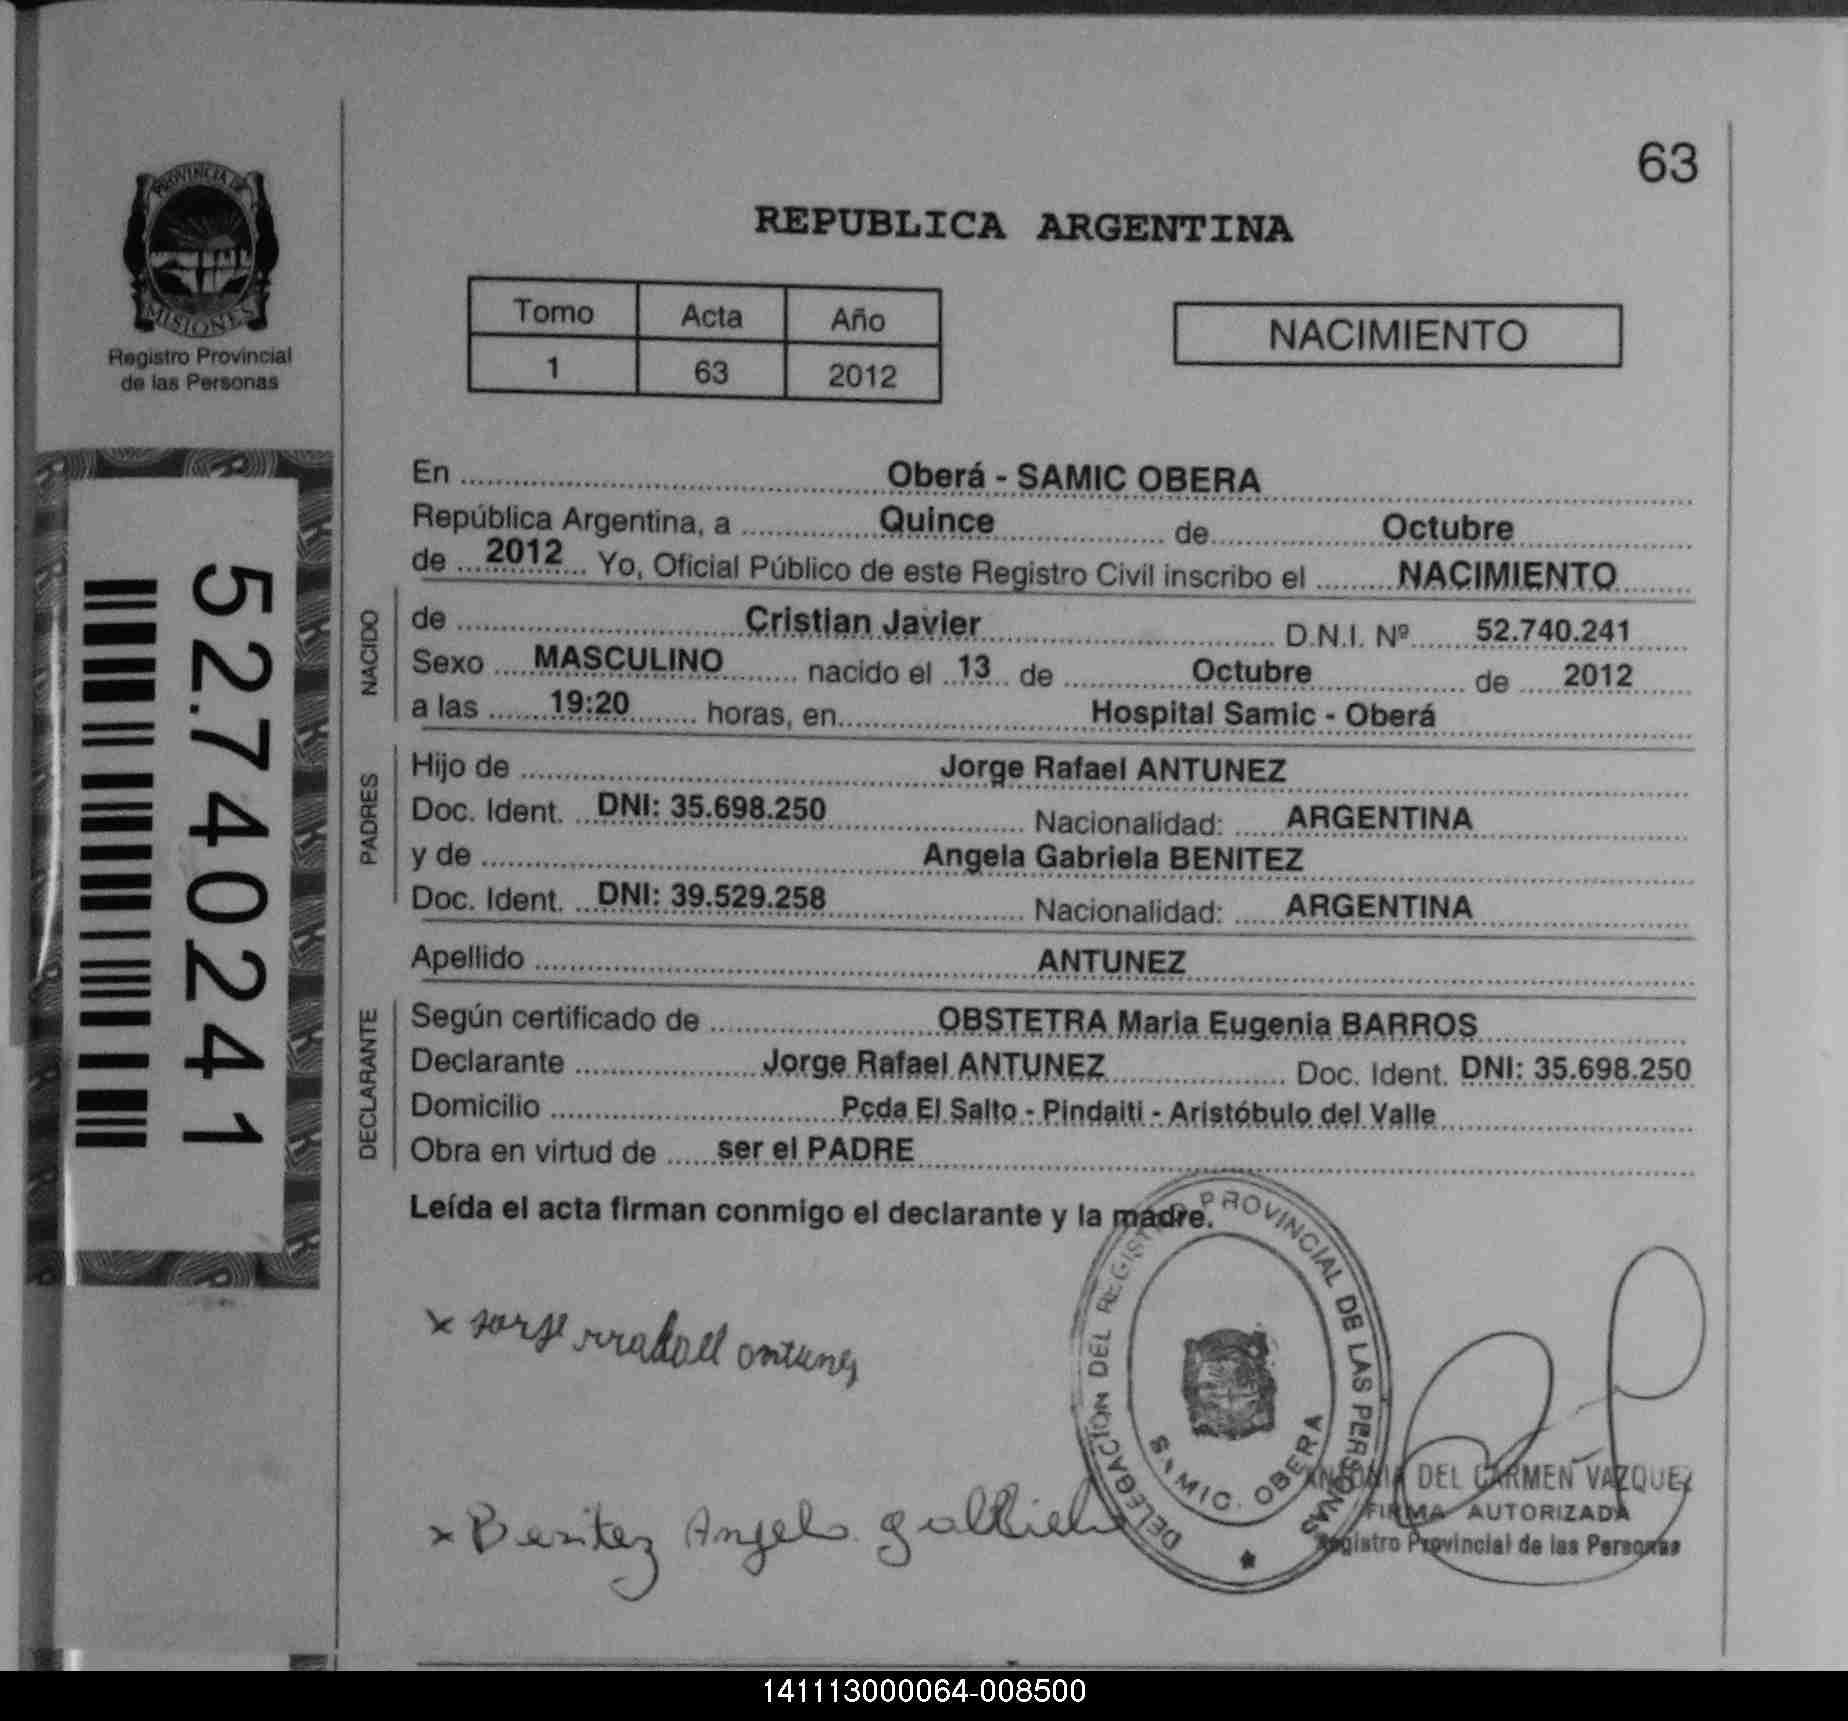 63
PROVINCIA DE
MISIONES
Registro Provincial
de las Personas
REPUBLICA ARGENTINA
Tomo Acta Año
1 63 2012
NACIMIENTO
52.740241
En Oberá - SAMIC OBERA
República Argentina, a Quince de Octubre
de 2012 Yo, Oficial Público de este Registro Civil inscribo el NACIMIENTO
NACIDO
de Cristian Javier D.N.I. Nº 52.740.241
Sexo MASCULINO nacido el 13 de Octubre de 2012
a las 19:20 horas, en Hospital Samic - Oberá
PADRES
Hijo de Jorge Rafael ANTUNEZ
Doc. Ident. DNI: 35.698.250 Nacionalidad: ARGENTINA
y de Angela Gabriela BENITEZ
Doc. Ident. DNI: 39.529.258 Nacionalidad: ARGENTINA
Apellido ANTUNEZ
DECLARANTE
Según certificado de OBSTETRA Maria Eugenia BARROS
Declarante Jorge Rafael ANTUNEZ Doc. Ident. DNI: 35.698.250
Domicilio Pcda El Salto - Pindaiti - Aristóbulo del Valle
Obra en virtud de ser el PADRE
Leída el acta firman conmigo el declarante y la madre.
DELEGACION DEL REGISTRO PROVINCIAL DE LAS PERSONAS
SAMIC. OBERA
x Benitez Angela gabriela
ANTONIA DEL CARMEN VAZQUEZ
FIRMA AUTORIZADA
Registro Provincial de las Personas
141113000064-008500